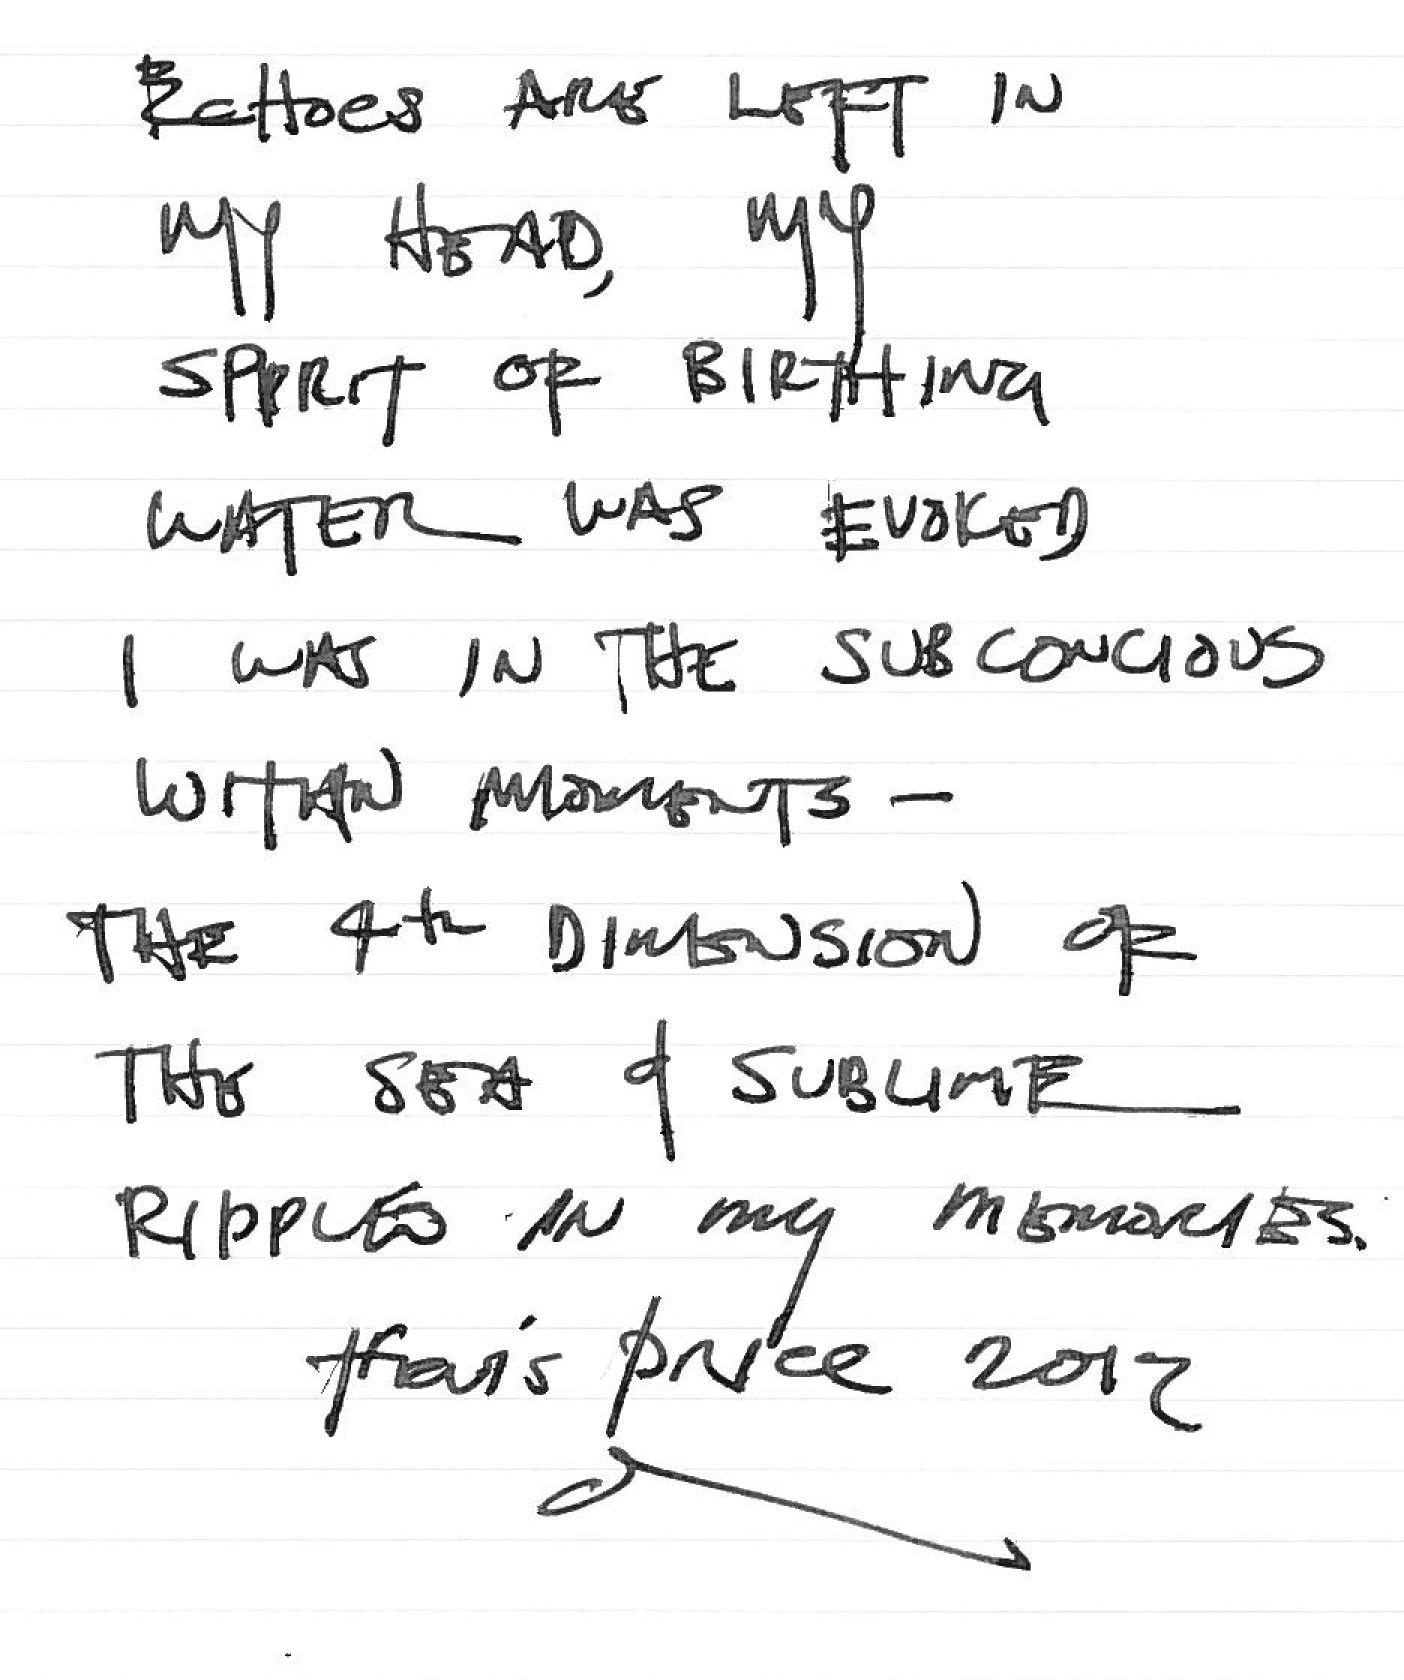 ECHOES ARE LEFT IN
MY HEAD, MY
SPIRIT OF BIRTHING
WATER WAS EVOKED
I WAS IN THE SUBCONCIOUS
WITHIN MOMENTS –
THE 4th DIMENSION OF
THE SEA & SUBLIME
RIPPLES IN MY MEMORIES.
travis price 2012